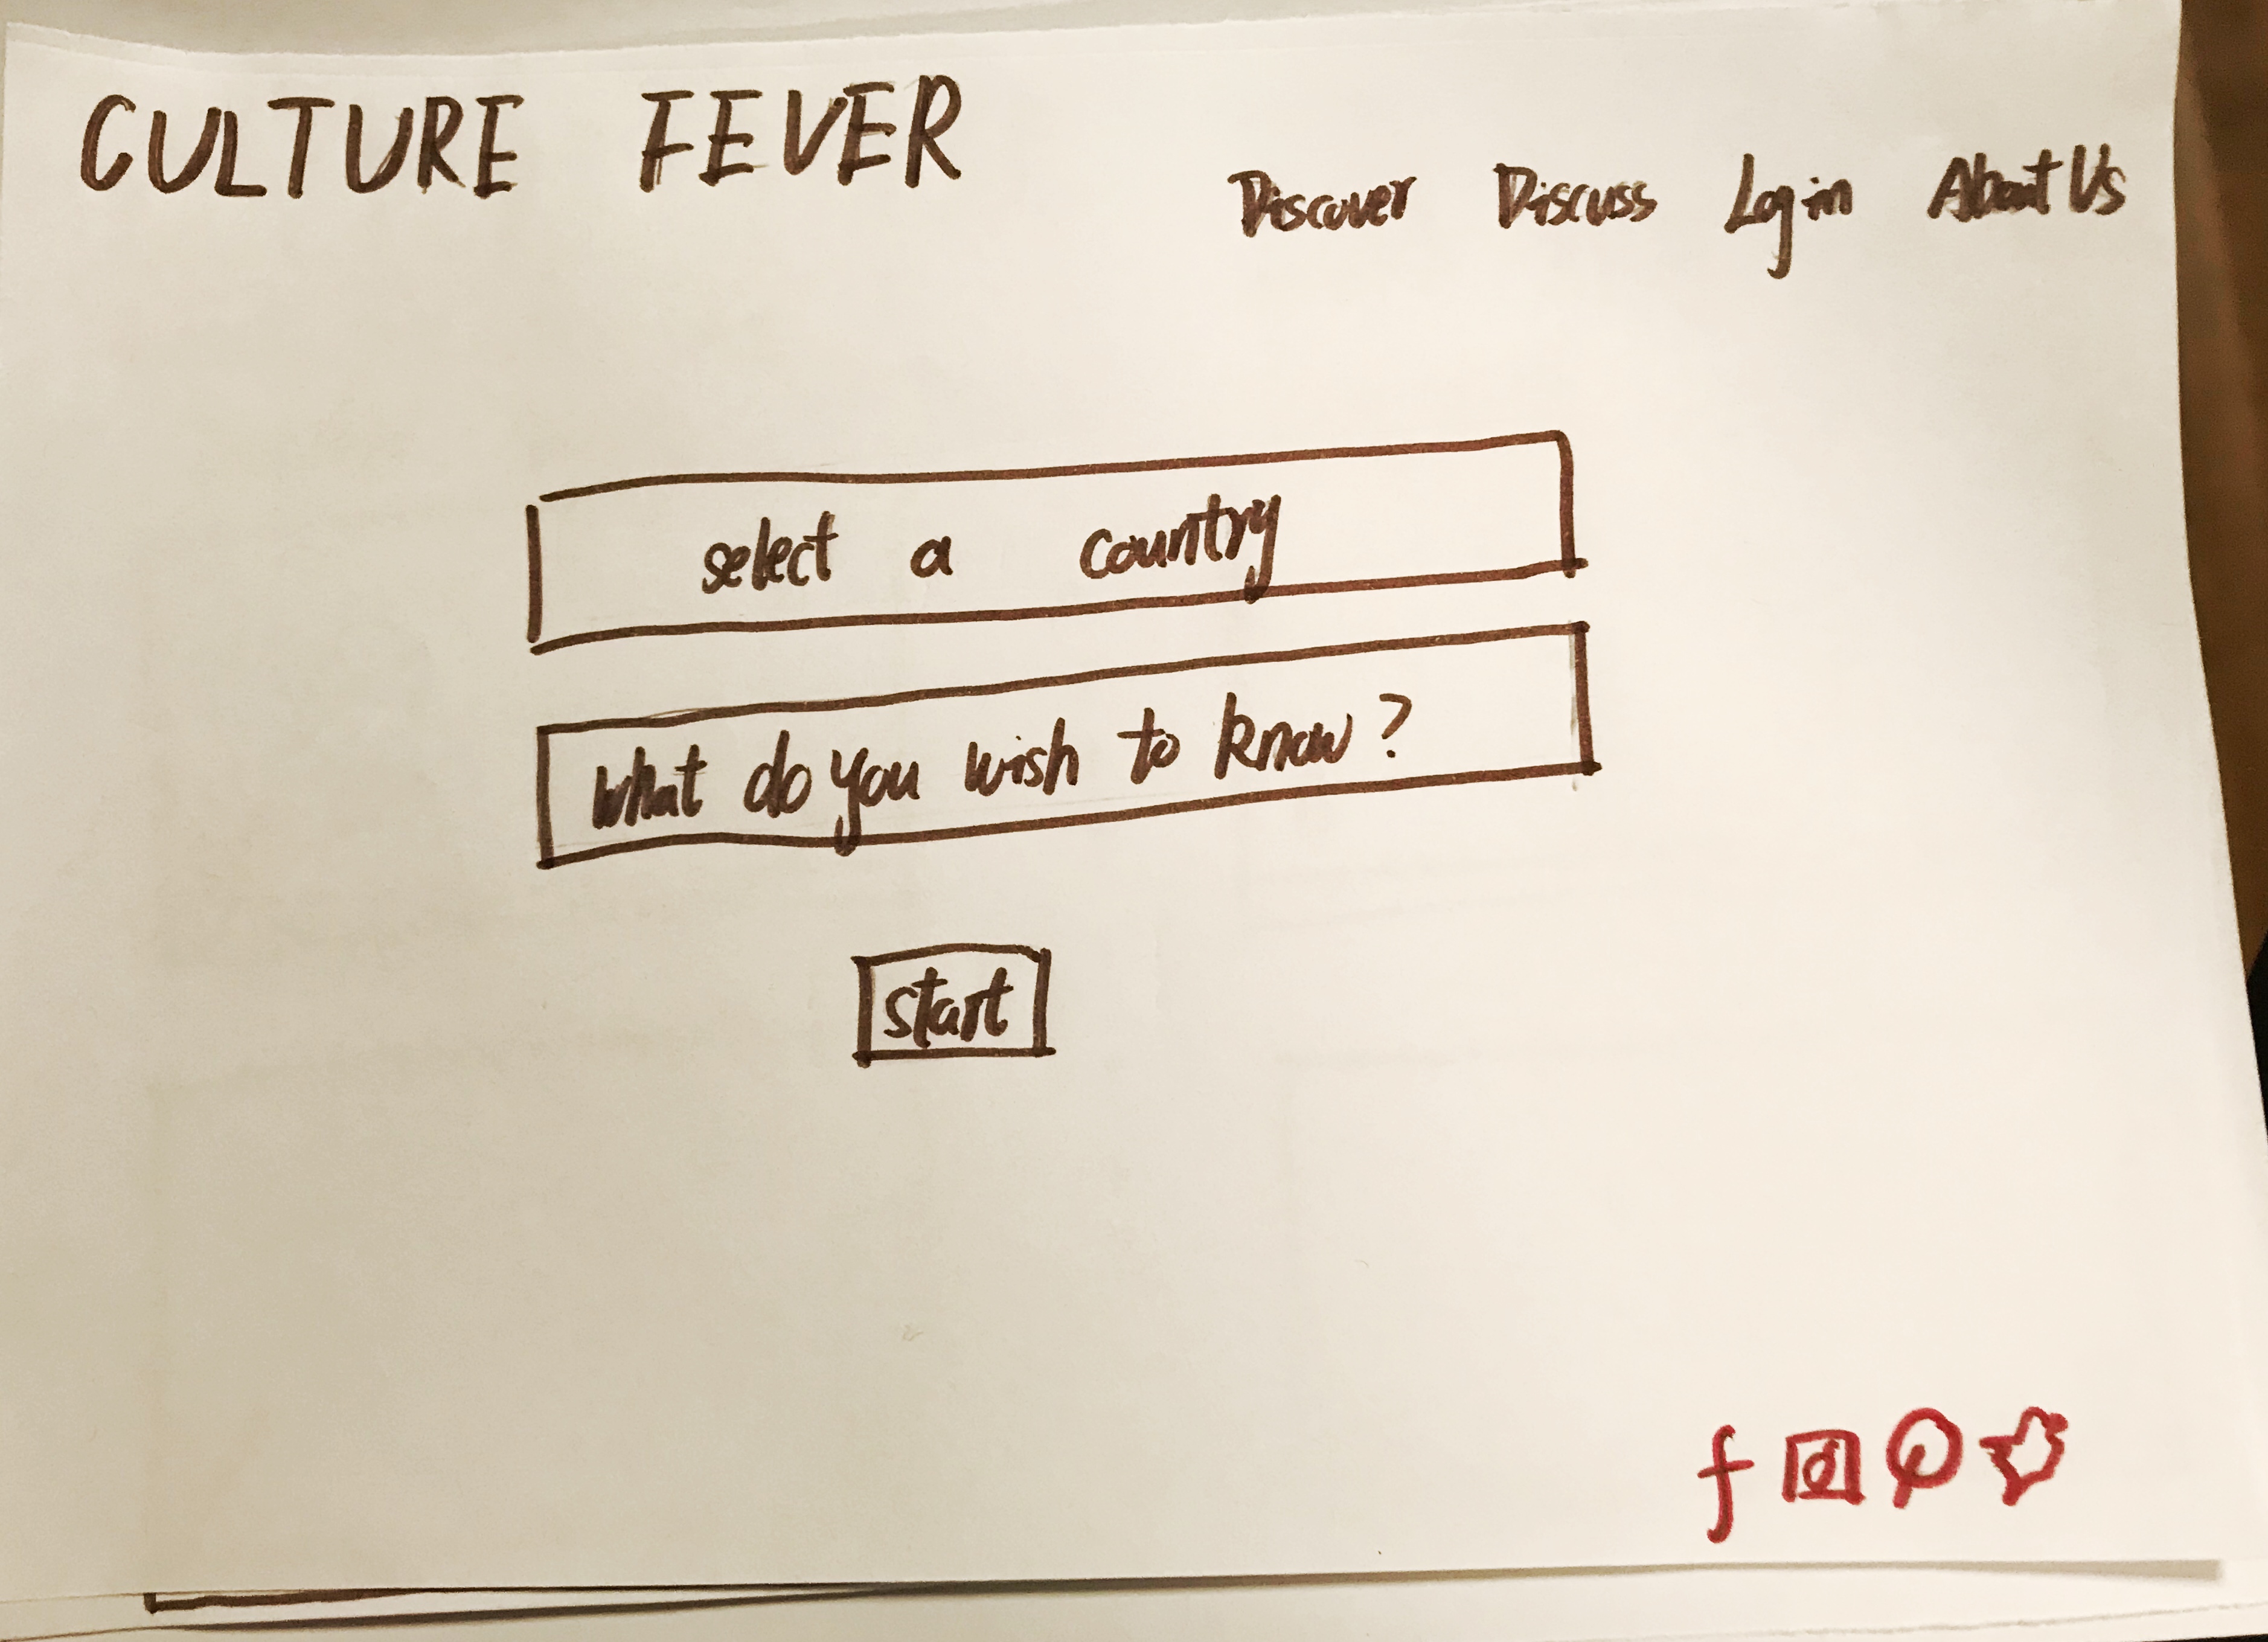 CULTURE FEVER
Discover Discuss Login About Us
select a country
What do you wish to know?
start
f